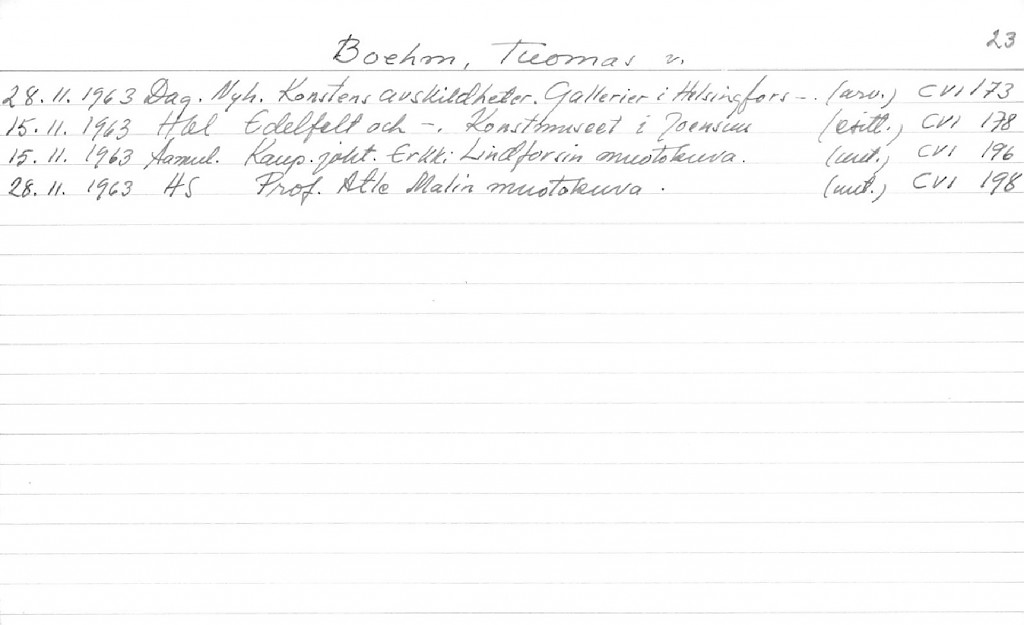 23
Boehm, Tuomas v.
28.11.1963 Dag. Nyh. Konstens avskildheter. Gallerier i Helsingfors -. (arv.) CVI 173
15.11. 1963 Hbl Edelfelt och -. Konstmuseet i Joensuu (esitt.) CVI 178
15.11. 1963 Aamul. Kaup.joht. Erkki Lindforsin muotokuva. (uut.) CVI 196
28.11. 1963 HS Prof. Atle Malin muotokuva. (uut.) CVI 198